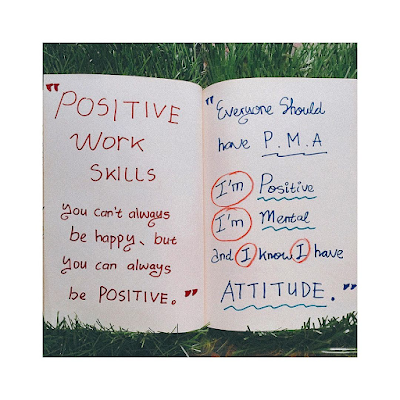 "POSITIVE
Work
SKILLS
You can't always
be happy, but
you can always
be POSITIVE."
"Everyone Should
have P.M.A
I'm Positive
I'm Mental
and I know I have
ATTITUDE."